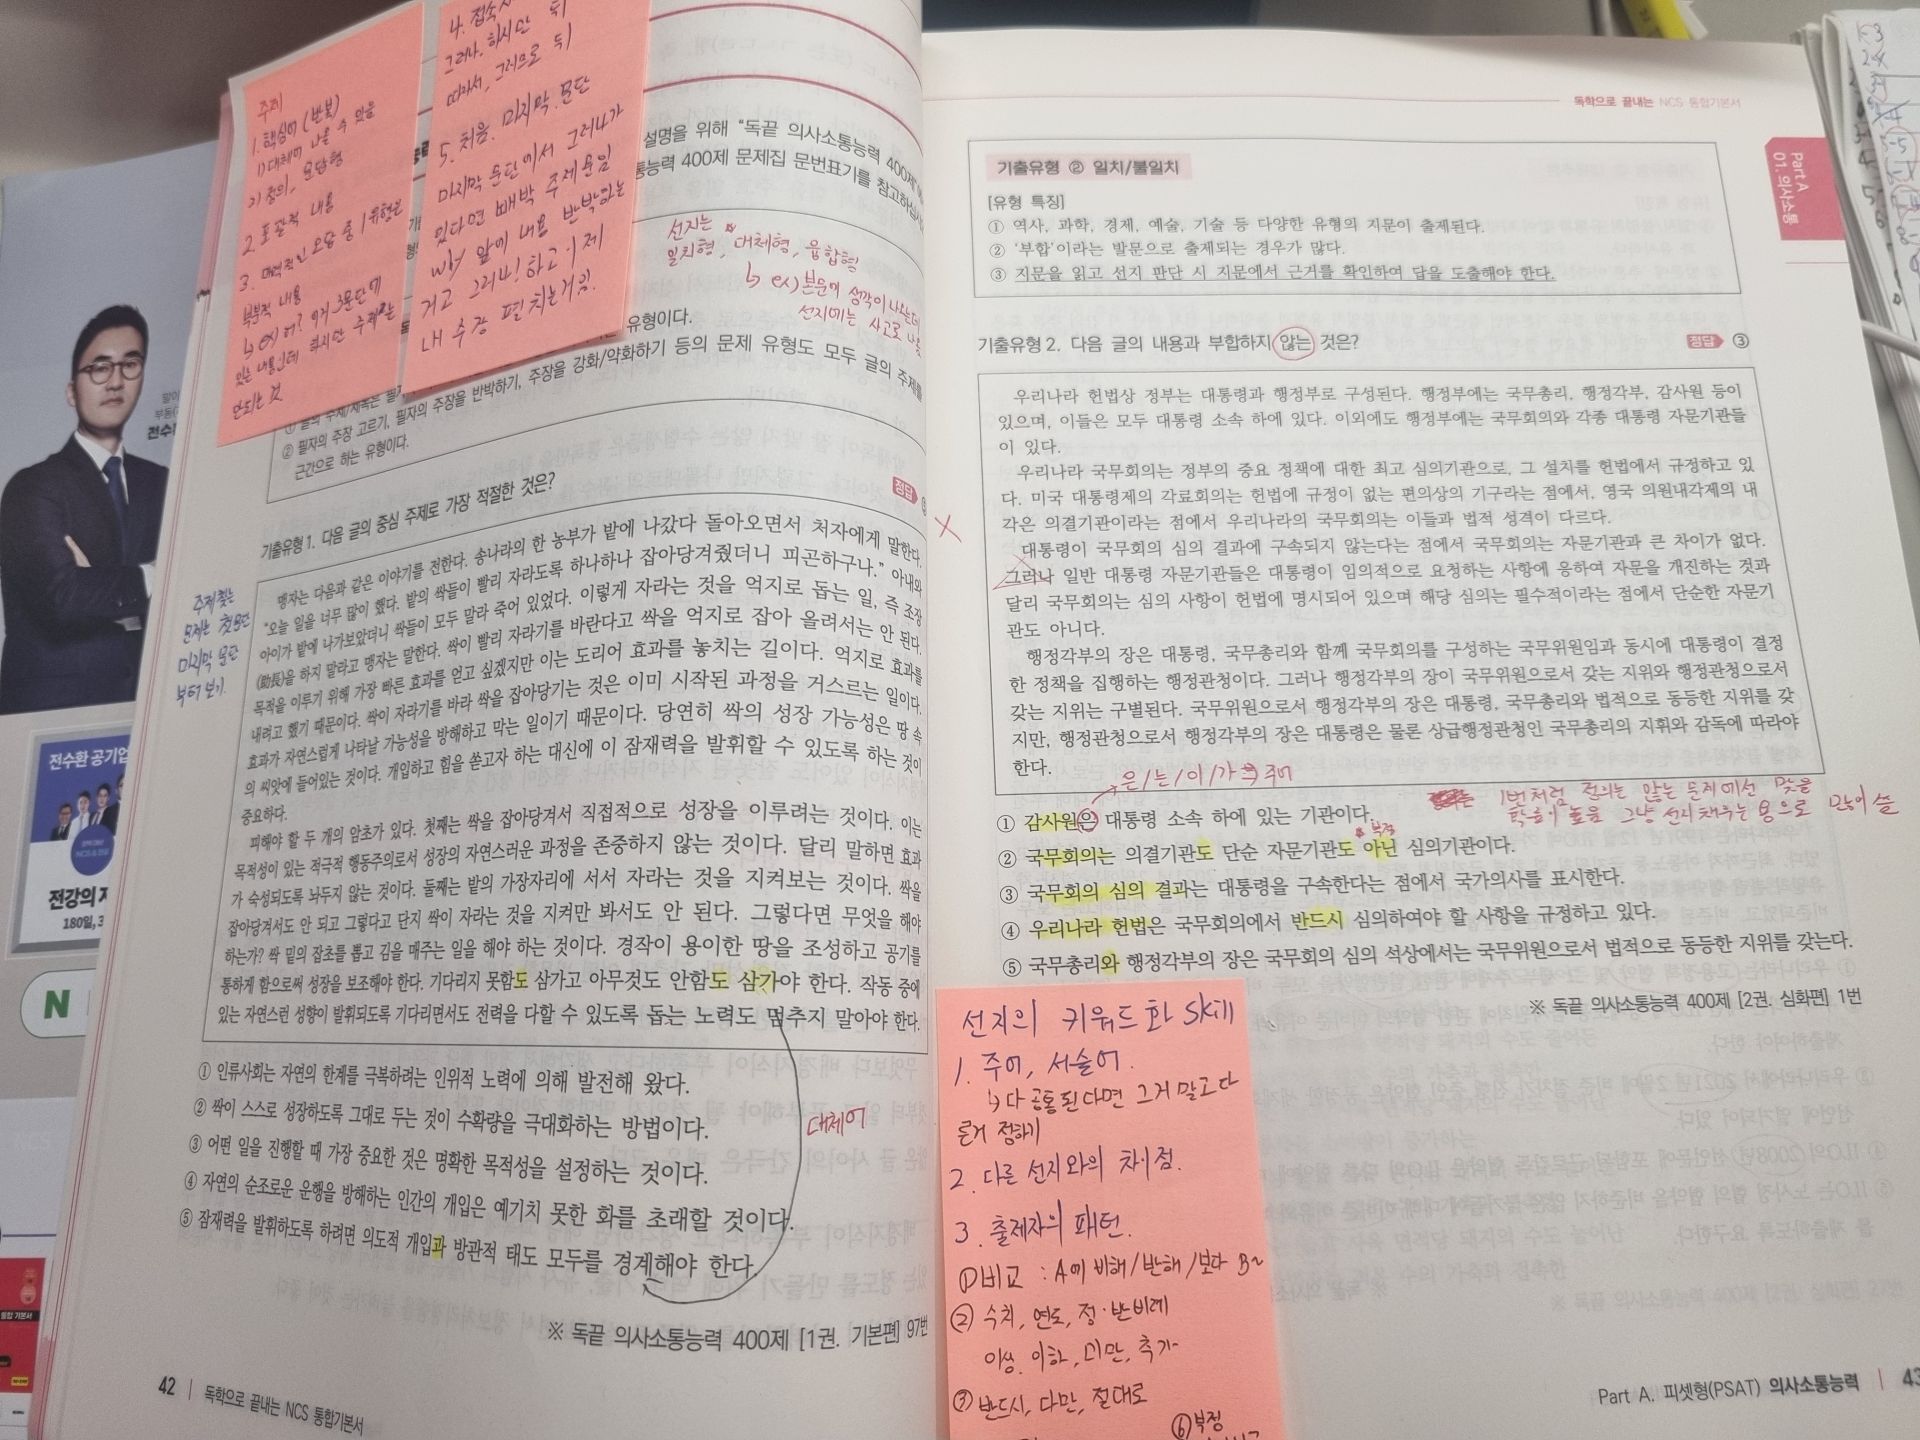 주제
1. 핵심어 (반복)
1) 대체어 나올 수 있음
2) 정의, 문답형
2. 포괄적 내용
3. 매력적인 오답 중 1유형은
부분적 내용
↳ ex) 어? 여기 3문단에
있는 내용인데 하지만 주제로는
안되는 것
4. 접속사
그러나, 하지만 뒤
따라서, 그러므로 뒤
5. 처음, 마지막 문단
마지막 문단에서 그러나가
있다면 빼박 주제문임
why 앞에 내용 반박하는
거고 그러나! 하고 이제
내 주장 펼치는거임.
설명을 위해 "독끝 의사소통능력 400제"
통능력 400제 문제집 문번표기를 참고하십시
선지는
일치형, 대체형, 융합형
↳ ex) 본문에 생각이 나오는데
선지에는 사고로 나옴
유형이다.
② 필자의 주장 고르기, 필자의 주장을 반박하기, 주장을 강화/약화하기 등의 문제 유형도 모두 글의 주제를
근간으로 하는 유형이다.
기출유형 1. 다음 글의 중심 주제로 가장 적절한 것은?
정답
주제찾는
문제는 첫문단
마지막 문단
부터 보기
맹자는 다음과 같은 이야기를 전한다. 송나라의 한 농부가 밭에 나갔다 돌아오면서 처자에게 말한다.
"오늘 일을 너무 많이 했다. 밭의 싹들이 빨리 자라도록 하나하나 잡아당겨줬더니 피곤하구나." 아내와
아이가 밭에 나가보았더니 싹들이 모두 말라 죽어 있었다. 이렇게 자라는 것을 억지로 돕는 일, 즉 조장
(助長)을 하지 말라고 맹자는 말한다. 싹이 빨리 자라기를 바란다고 싹을 억지로 잡아 올려서는 안 된다.
목적을 이루기 위해 가장 빠른 효과를 얻고 싶겠지만 이는 도리어 효과를 놓치는 길이다. 억지로 효과를
내려고 했기 때문이다. 싹이 자라기를 바라 싹을 잡아당기는 것은 이미 시작된 과정을 거스르는 일이다.
효과가 자연스럽게 나타날 가능성을 방해하고 막는 일이기 때문이다. 당연히 싹의 성장 가능성은 땅 속
의 씨앗에 들어있는 것이다. 개입하고 힘을 쏟고자 하는 대신에 이 잠재력을 발휘할 수 있도록 하는 것이
중요하다.
피해야 할 두 개의 암초가 있다. 첫째는 싹을 잡아당겨서 직접적으로 성장을 이루려는 것이다. 이는
목적성이 있는 적극적 행동주의로서 성장의 자연스러운 과정을 존중하지 않는 것이다. 달리 말하면 효과
가 숙성되도록 놔두지 않는 것이다. 둘째는 밭의 가장자리에 서서 자라는 것을 지켜보는 것이다. 싹을
잡아당겨서도 안 되고 그렇다고 단지 싹이 자라는 것을 지켜만 봐서도 안 된다. 그렇다면 무엇을 해야
하는가? 싹 밑의 잡초를 뽑고 김을 매주는 일을 해야 하는 것이다. 경작이 용이한 땅을 조성하고 공기를
통하게 함으로써 성장을 보조해야 한다. 기다리지 못함도 삼가고 아무것도 안함도 삼가야 한다. 작동 중에
있는 자연스런 성향이 발휘되도록 기다리면서도 전력을 다할 수 있도록 돕는 노력도 멈추지 말아야 한다.
① 인류사회는 자연의 한계를 극복하려는 인위적 노력에 의해 발전해 왔다.
② 싹이 스스로 성장하도록 그대로 두는 것이 수확량을 극대화하는 방법이다.
③ 어떤 일을 진행할 때 가장 중요한 것은 명확한 목적성을 설정하는 것이다.
④ 자연의 순조로운 운행을 방해하는 인간의 개입은 예기치 못한 화를 초래할 것이다.
⑤ 잠재력을 발휘하도록 하려면 의도적 개입과 방관적 태도 모두를 경계해야 한다.
대체어
※ 독끝 의사소통능력 400제 [1권. 기본편] 97번
42 | 독학으로 끝내는 NCS 통합기본서
전수환 공기업
NCS & 전공
180일, 3
독학으로 끝내는 NCS 통합기본서
Part A
01. 의사소통
기출유형 ② 일치/불일치
[유형 특징]
① 역사, 과학, 경제, 예술, 기술 등 다양한 유형의 지문이 출제된다.
② '부합'이라는 발문으로 출제되는 경우가 많다.
③ 지문을 읽고 선지 판단 시 지문에서 근거를 확인하여 답을 도출해야 한다.
기출유형 2. 다음 글의 내용과 부합하지 않는 것은?
정답 ③
우리나라 헌법상 정부는 대통령과 행정부로 구성된다. 행정부에는 국무총리, 행정각부, 감사원 등이
있으며, 이들은 모두 대통령 소속 하에 있다. 이외에도 행정부에는 국무회의와 각종 대통령 자문기관들
이 있다.
우리나라 국무회의는 정부의 중요 정책에 대한 최고 심의기관으로, 그 설치를 헌법에서 규정하고 있
다. 미국 대통령제의 각료회의는 헌법에 규정이 없는 편의상의 기구라는 점에서, 영국 의원내각제의 내
각은 의결기관이라는 점에서 우리나라의 국무회의는 이들과 법적 성격이 다르다.
대통령이 국무회의 심의 결과에 구속되지 않는다는 점에서 국무회의는 자문기관과 큰 차이가 없다.
그러나 일반 대통령 자문기관들은 대통령이 임의적으로 요청하는 사항에 응하여 자문을 개진하는 것과
달리 국무회의는 심의 사항이 헌법에 명시되어 있으며 해당 심의는 필수적이라는 점에서 단순한 자문기
관도 아니다.
행정각부의 장은 대통령, 국무총리와 함께 국무회의를 구성하는 국무위원임과 동시에 대통령이 결정
한 정책을 집행하는 행정관청이다. 그러나 행정각부의 장이 국무위원으로서 갖는 지위와 행정관청으로서
갖는 지위는 구별된다. 국무위원으로서 행정각부의 장은 대통령, 국무총리와 법적으로 동등한 지위를 갖
지만, 행정관청으로서 행정각부의 장은 대통령은 물론 상급행정관청인 국무총리의 지휘와 감독에 따라야
한다.
은/는/이/가 → 주어
1번처럼 전의는 않는 문제에선 맞을
확률이 높음 그냥 선지 채우는 용으로 많이 씀
① 감사원은 대통령 소속 하에 있는 기관이다.
부정
② 국무회의는 의결기관도 단순 자문기관도 아닌 심의기관이다.
③ 국무회의 심의 결과는 대통령을 구속한다는 점에서 국가의사를 표시한다.
④ 우리나라 헌법은 국무회의에서 반드시 심의하여야 할 사항을 규정하고 있다.
⑤ 국무총리와 행정각부의 장은 국무회의 심의 석상에서는 국무위원으로서 법적으로 동등한 지위를 갖는다.
※ 독끝 의사소통능력 400제 [2권. 심화편] 1번
선지의 키워드화 skill
1. 주어, 서술어.
↳ 다 공통된다면 그거 말고 다
른거 정하기
2. 다른 선지와의 차이점.
3. 출제자의 패턴.
① 비교 : A에 비해/반해/보다 B~
② 수치, 연도, 정·반비례
이상, 이하, 미만, 초과
③ 반드시, 다만, 절대로
⑥ 부정
Part A. 피셋형(PSAT) 의사소통능력 | 43